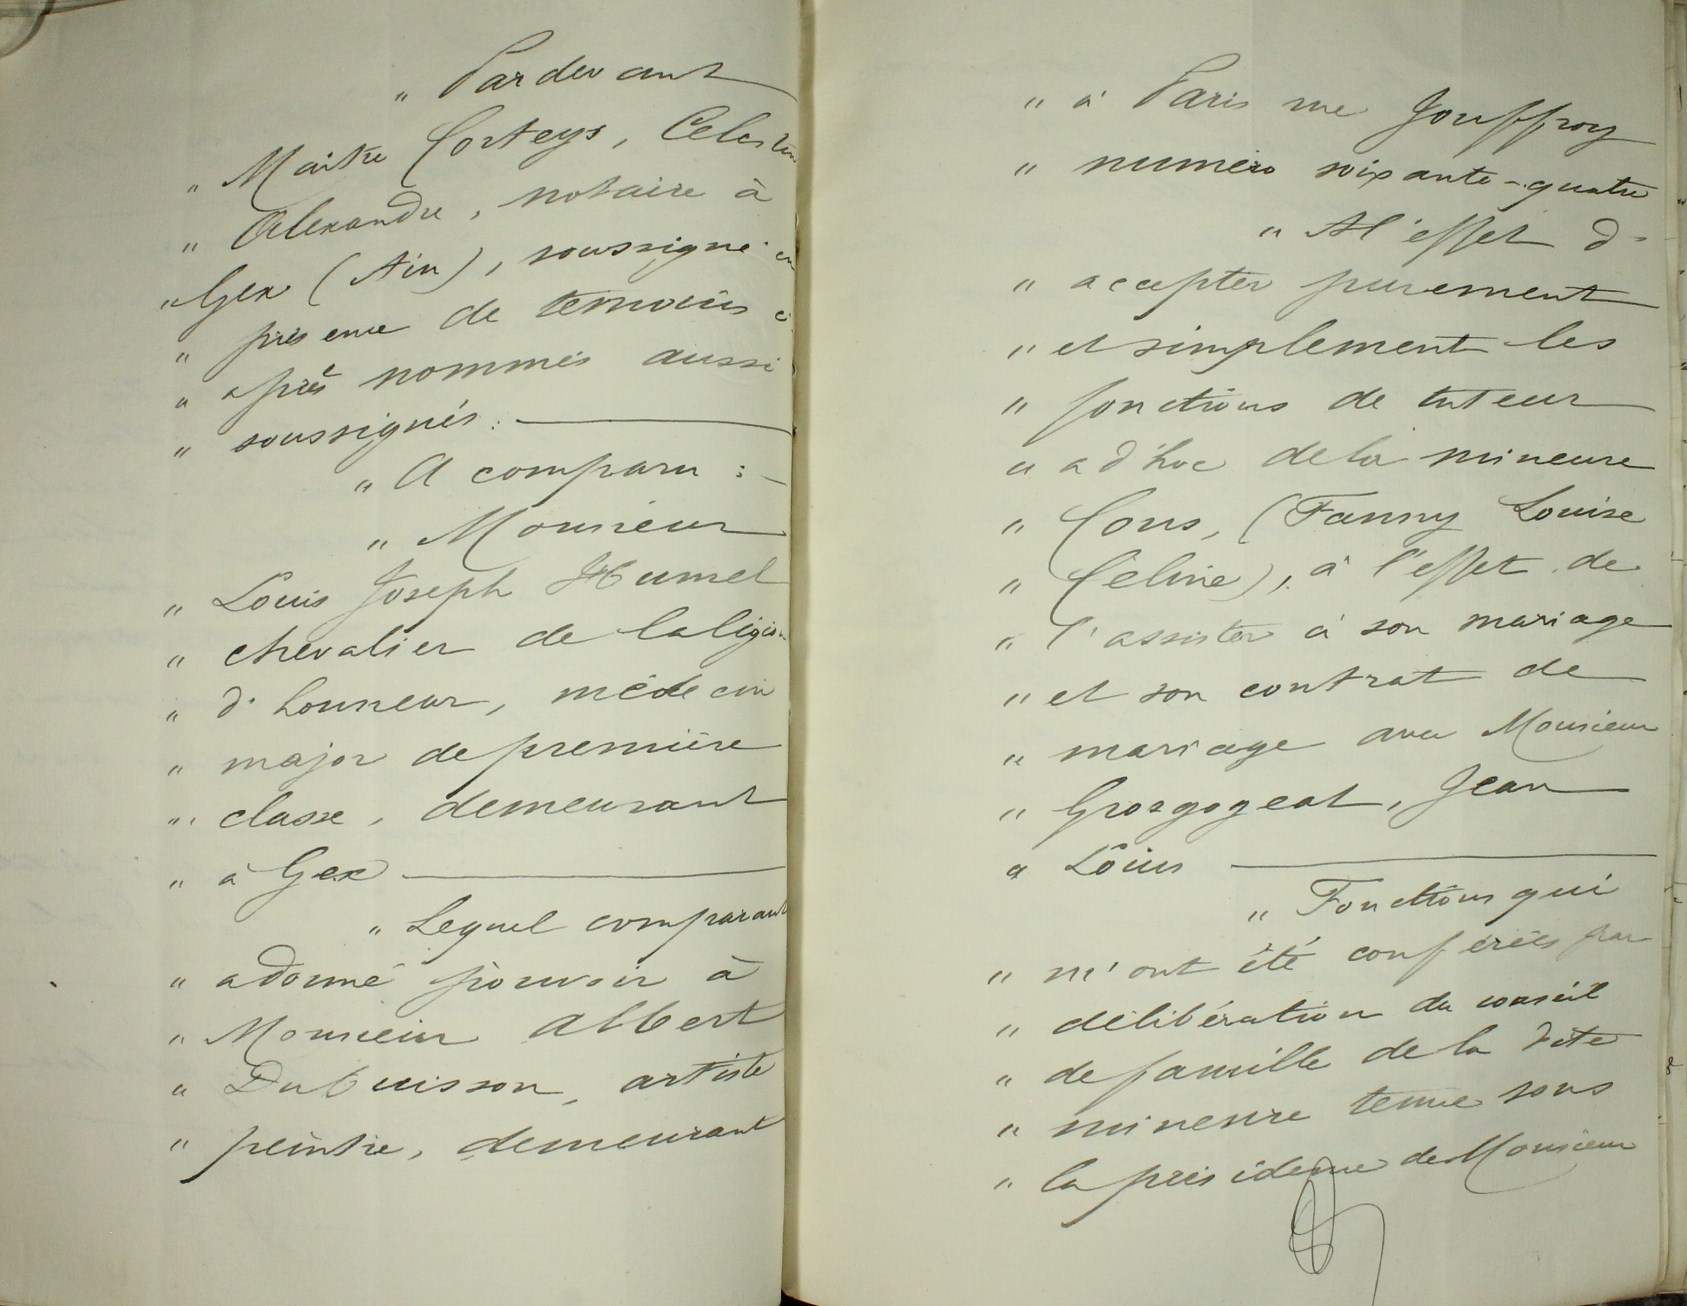 " Pardevant
" Maitre Corteys, Célestin
" Alexandre, notaire à
" Gex (Ain), soussigné en
" présence de témoins ci
" après nommés aussi
" soussignés. —
" A comparu : —
" Monsieur
" Louis Joseph Humel
" chevalier de la légion
" d'honneur, médecin
" major de première
" classe, demeurant
" à Gex —
" Lequel comparant
" a donné pouvoir à
" Monsieur Albert
" Dubuisson, artiste
" peintre, demeurant
" à Paris rue Jouffroy
" numéro soixante-quatre
" A l'effet d'
" accepter purement
" et simplement les
" fonctions de tuteur
" ad'hoc de la mineure
" Cons, (Fanny Louise
" Céline), à l'effet de
" l'assister à son mariage
" et son contrat de
" mariage avec Monsieur
" Grosgogeat, Jean
" Louis —
" Fonctions qui
" m'ont été conférées par
" délibération du conseil
" de famille de la dite
" mineure tenue sous
" la présidence de Monsieur